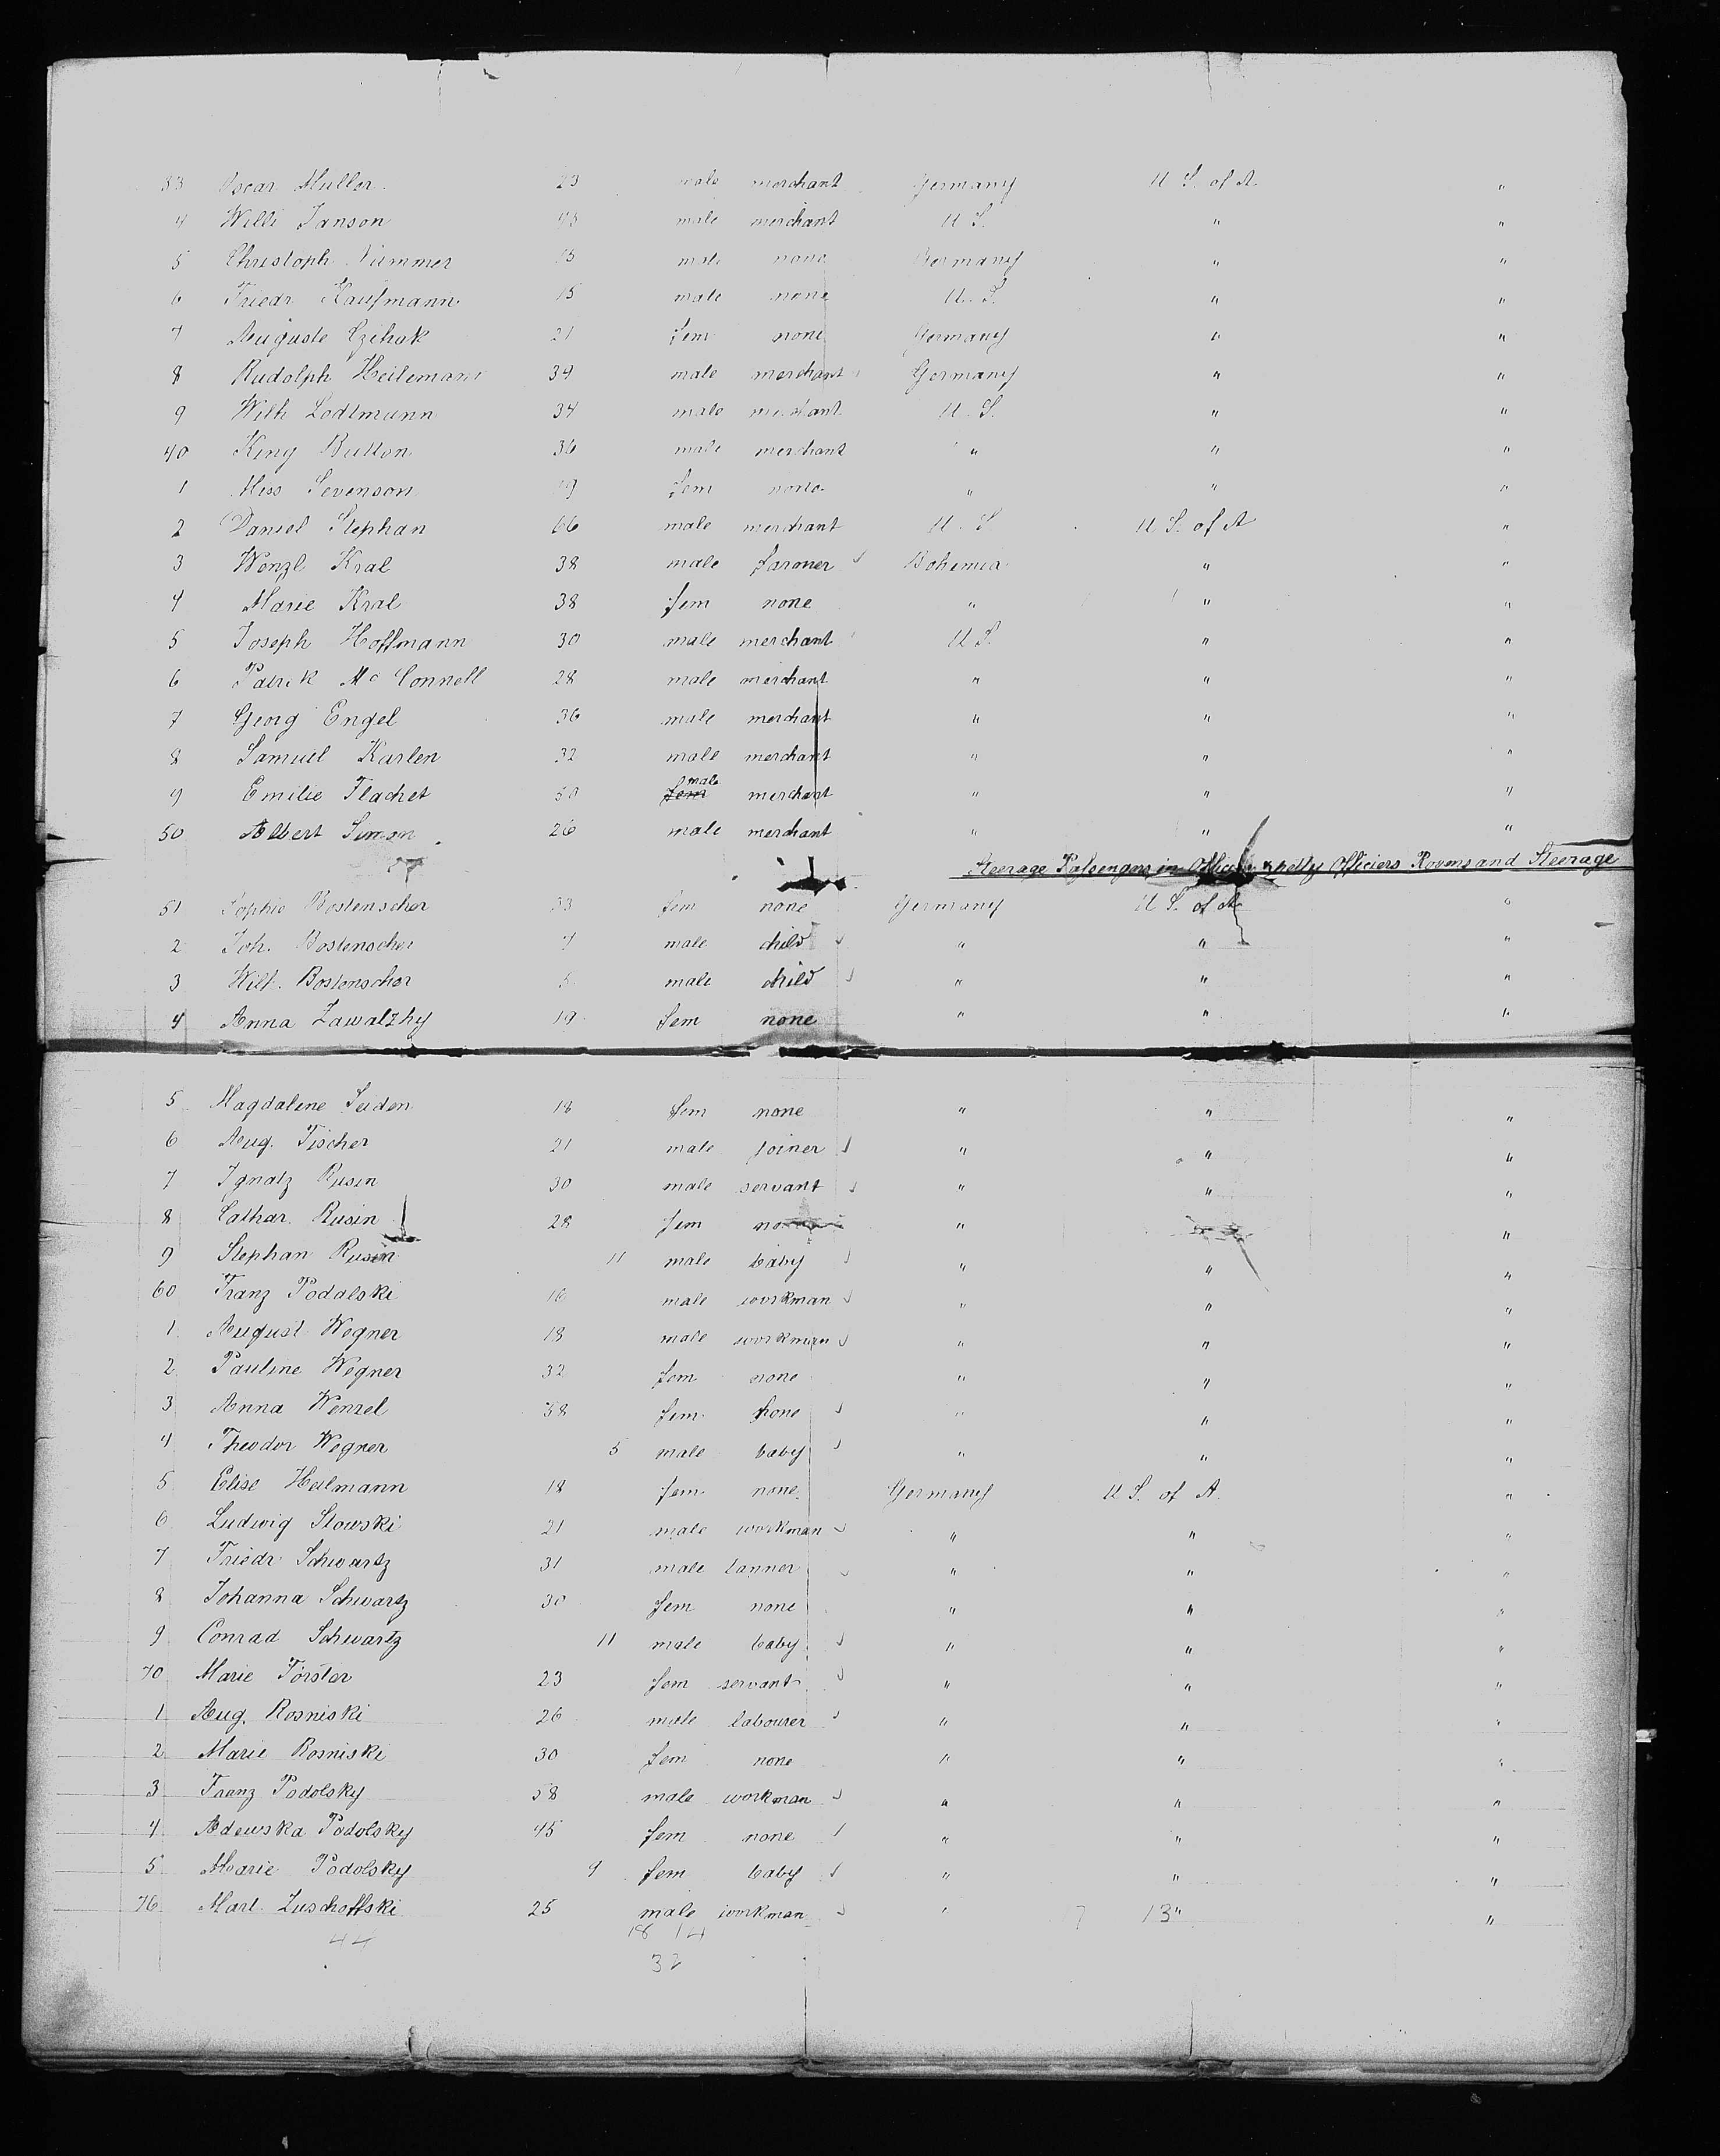 33 Oscar Muller 23 male merchant Germany U S. of A. "
4 Willi Janson male merchant U S. " "
5 Christoph male none Germany " "
6 Friedr Kaufmann 15 male none U. S. " "
7 Auguste Czihak 21 fem none Germany " "
8 Rudolph Heilemann 34 male merchant Germany " "
9 Wilh Lodtmann 34 male merchant U. S. " "
40 King Button 36 male merchant " " "
1 Miss Sevenson 19 fem none " " "
2 Daniel Stephan 66 male merchant U. S U S. of A "
3 Wenzl Kral 38 male farmer Bohemia " "
4 Marie Kral 38 fem none " " "
5 Joseph Hoffmann 30 male merchant U S. " "
6 Patrik Mc Connell 28 male merchant " " "
7 Georg Engel 36 male merchant " " "
8 Samuel Karlen 32 male merchant " " "
9 Emilie Flachet 30 fem male merchant " " "
50 Albert Simon 26 male merchant " " "
Steerage Passengers in Officers & petty Officiers Rooms and Steerage
51 Sophie Bostenscher 33 fem none Germany U S. of A "
2 Joh. Bostenscher 7 male child " " "
3 Wilh. Bostenscher male child " " "
4 Anna Zawalzhy 19 fem none " " "
5 Magdalene Seiden 18 fem none " " "
6 Aug. Fischer 21 male joiner " " "
7 Ignatz Rusin 30 male servant " " "
8 Cathar. Rusin 28 fem "
9 Stephan Rusin 11 male baby " " "
60 Franz Podalski 16 male workman " " "
1 August Wegner 18 male workman " " "
2 Pauline Wegner 32 fem none " " "
3 Anna Wenzel 38 fem none " " "
4 Theodor Wegner 5 male baby " " "
5 Elise Heilmann 18 fem none Germany U S. of A. "
6 Ludwig Slowski 21 male workman " " "
7 Friedr Schwartz 31 male tanner " " "
8 Johanna Schwartz 30 fem none " " "
9 Conrad Schwartz 11 male baby " " "
70 Marie Förster 23 fem servant " " "
1 Aug. Rosniski 26 male labourer " " "
2 Marie Rosniski 30 fem none " " "
3 Franz Podolsky 58 male workman " " "
4 Adewska Podolsky 45 fem none " " "
5 Marie Podolsky 9 fem baby " " "
76 Mart. Zuschoffski 25 male workman " 13" "
44 18 14
32